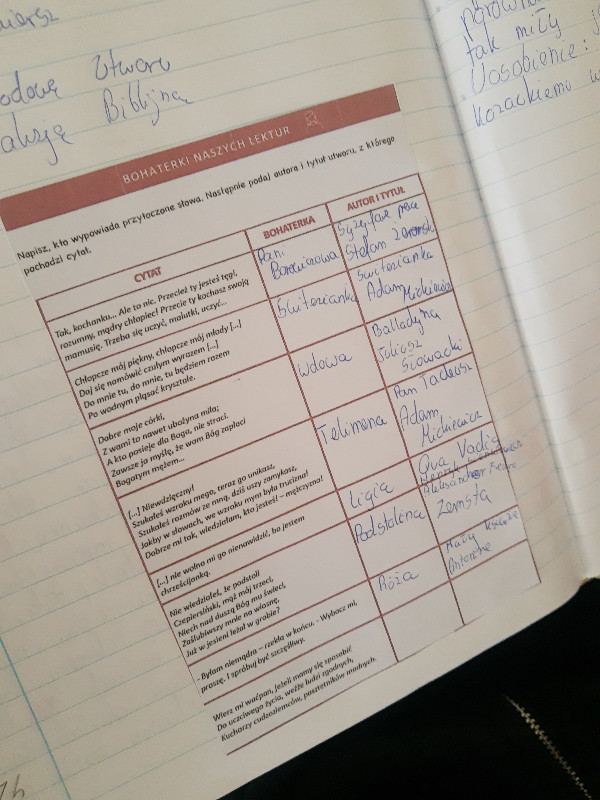 utworu
Biblijna
tak miły
Uosobienie:
BOHATERKI NASZYCH LEKTUR
Napisz, kto wypowiada przytoczone słowa. Następnie podaj autora i tytuł utworu, z którego
pochodzi cytat.
CYTAT
BOHATERKA
AUTOR I TYTUŁ
Tak, kochanku... Ale to nic. Przecież ty jesteś tęgi,
rozumny, mądry chłopiec! Przecie ty kochasz swoją
mamusię. Trzeba się uczyć, malutki, uczyć...
Pani
Borowiczowa
Syzyfowe prace
Stefan Żeromski
Chłopcze mój piękny, chłopcze mój młody [...]
Daj się namówić czułym wyrazem [...]
Do mnie tu, do mnie, tu będziem razem
Po wodnym pląsać krysztale.
Świtezianka
Świtezianka
Adam Mickiewicz
Dobre moje córki,
Z wami to nawet ubożyna miła;
A kto posieje dla Boga, nie straci.
Zawsze ja myślę, że wam Bóg zapłaci
Bogatym mężem...
wdowa
Balladyna
Juliusz
Słowacki
[...] Niewdzięczny!
Szukałeś wzroku mego, teraz go unikasz,
Szukałeś rozmów ze mną, dziś uszy zamykasz,
Jakby w słowach, we wzroku mym była trucizna!
Dobrze mi tak, wiedziałam, kto jesteś! – mężczyzna!
Telimena
Pan Tadeusz
Adam
Mickiewicz
[...] nie wolno mi go nienawidzić, bo jestem
chrześcijanką.
Ligia
Quo Vadis
Nie wiedziałeś, że podstoli
Czepiersiński, mąż mój trzeci,
Niech nad duszą Bóg mu świeci,
Zaślubiwszy mnie na wiosnę,
Już w jesieni leżał w grobie?
Podstolina
Aleksander Fredro
Zemsta
- Byłam niemądra – rzekła w końcu. - Wybacz mi,
proszę. I spróbuj być szczęśliwy.
Róża
Mały książę
Antoine
Wierz mi waćpan, jeżeli mamy się sposobić
Do uczciwego życia, weźże ludzi zgodnych,
Kucharzy cudzoziemców, pasztetników modnych.